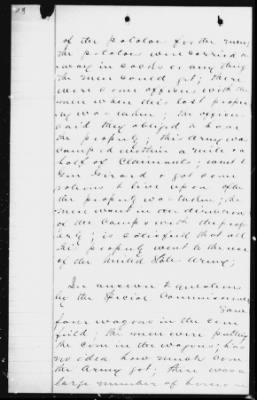 of the potatoes for the men;
the potatoes were carried a
way in sacks or any thing
the men could get; there
were some officers with the
men when this last proper
ty was taken; the officers
said they obliged to have
the property; this army was
camped within a mile or a
half of Claimants; went to
Gen Girard & got some
rations to live upon after
the property was taken; the
men went in the direction
of the camps with the prop
erty; is satisfied that all
the property went to the use
of the United States Army;
In answer to questions
by the Special Commissioner
Saw
four wagons in the corn
field; the men were putting
the corn in the wagons; has
no idea how much corn
the Army got; there was a
large number of horses